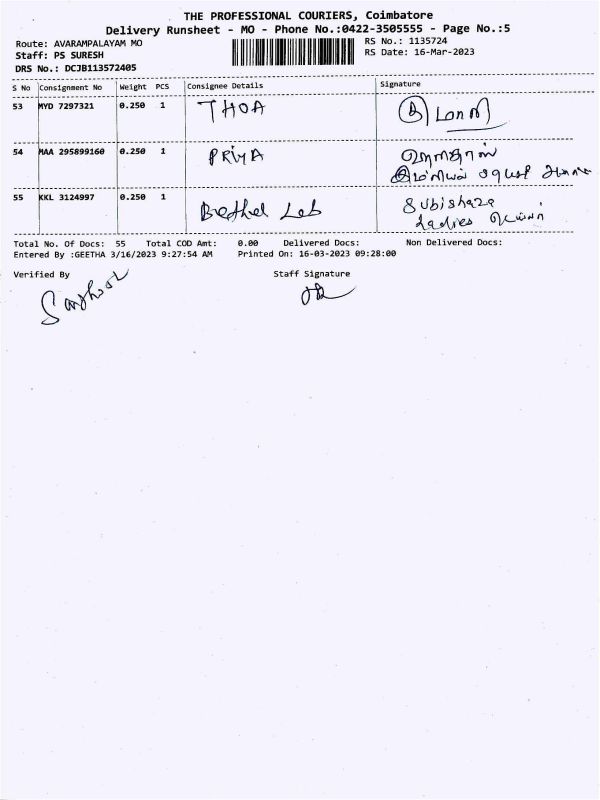 THE PROFESSIONAL COURIERS, Coimbatore
Delivery Runsheet - MO - Phone No.:0422-3505555 - Page No.:5
Route: AVARAMPALAYAM MO
RS No.: 1135724
Staff: PS SURESH
RS Date: 16-Mar-2023
DRS No.: DCJB113572405
S No Consignment No Weight PCS Consignee Details Signature
53 MYD 7297321 0.250 1 THOA
54 MAA 295899160 0.250 1 PRIYA
55 KKL 3124997 0.250 1 Bethel Lab Subishaza
Ladies
Total No. Of Docs: 55 Total COD Amt: 0.00 Delivered Docs: Non Delivered Docs:
Entered By :GEETHA 3/16/2023 9:27:54 AM Printed On: 16-03-2023 09:28:00
Verified By Staff Signature